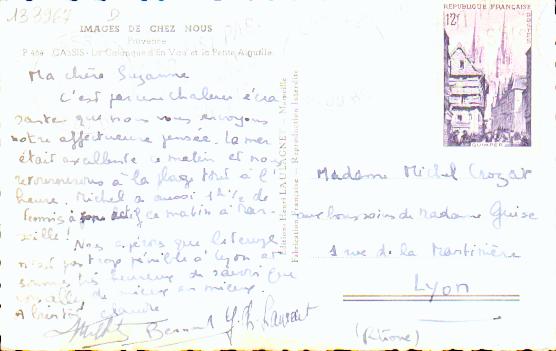 139967 D
IMAGES DE CHEZ NOUS
Provence
P 464 CASSIS - La Calanque d'En Vau et la Petite Aiguille
Ma chère Suzanne
C'est par une chaleur écra
sante que nous vous envoyons
notre affectueuse pensée. La mer
était excellente ce matin et nous
retournerons à la plage tout à l'
heure. Michel a aussi 1h 1/2 de
tennis à son actif ce matin à Mar-
seille!
Nous espérons que le temps
n'est pas trop pénible à Lyon et
sommes très heureux de savoir que
de mieux en mieux.
A bientôt
Claude
Bernard
Edition Henri LAUGAGNE - Marseille
Fabrication Française - Reproduction Interdite
REPUBLIQUE FRANÇAISE
12F
QUIMPER
Madame Michel Crozat
aux bons soins de Madame Guise
1 rue de la Martinière
Lyon
(Rhône)